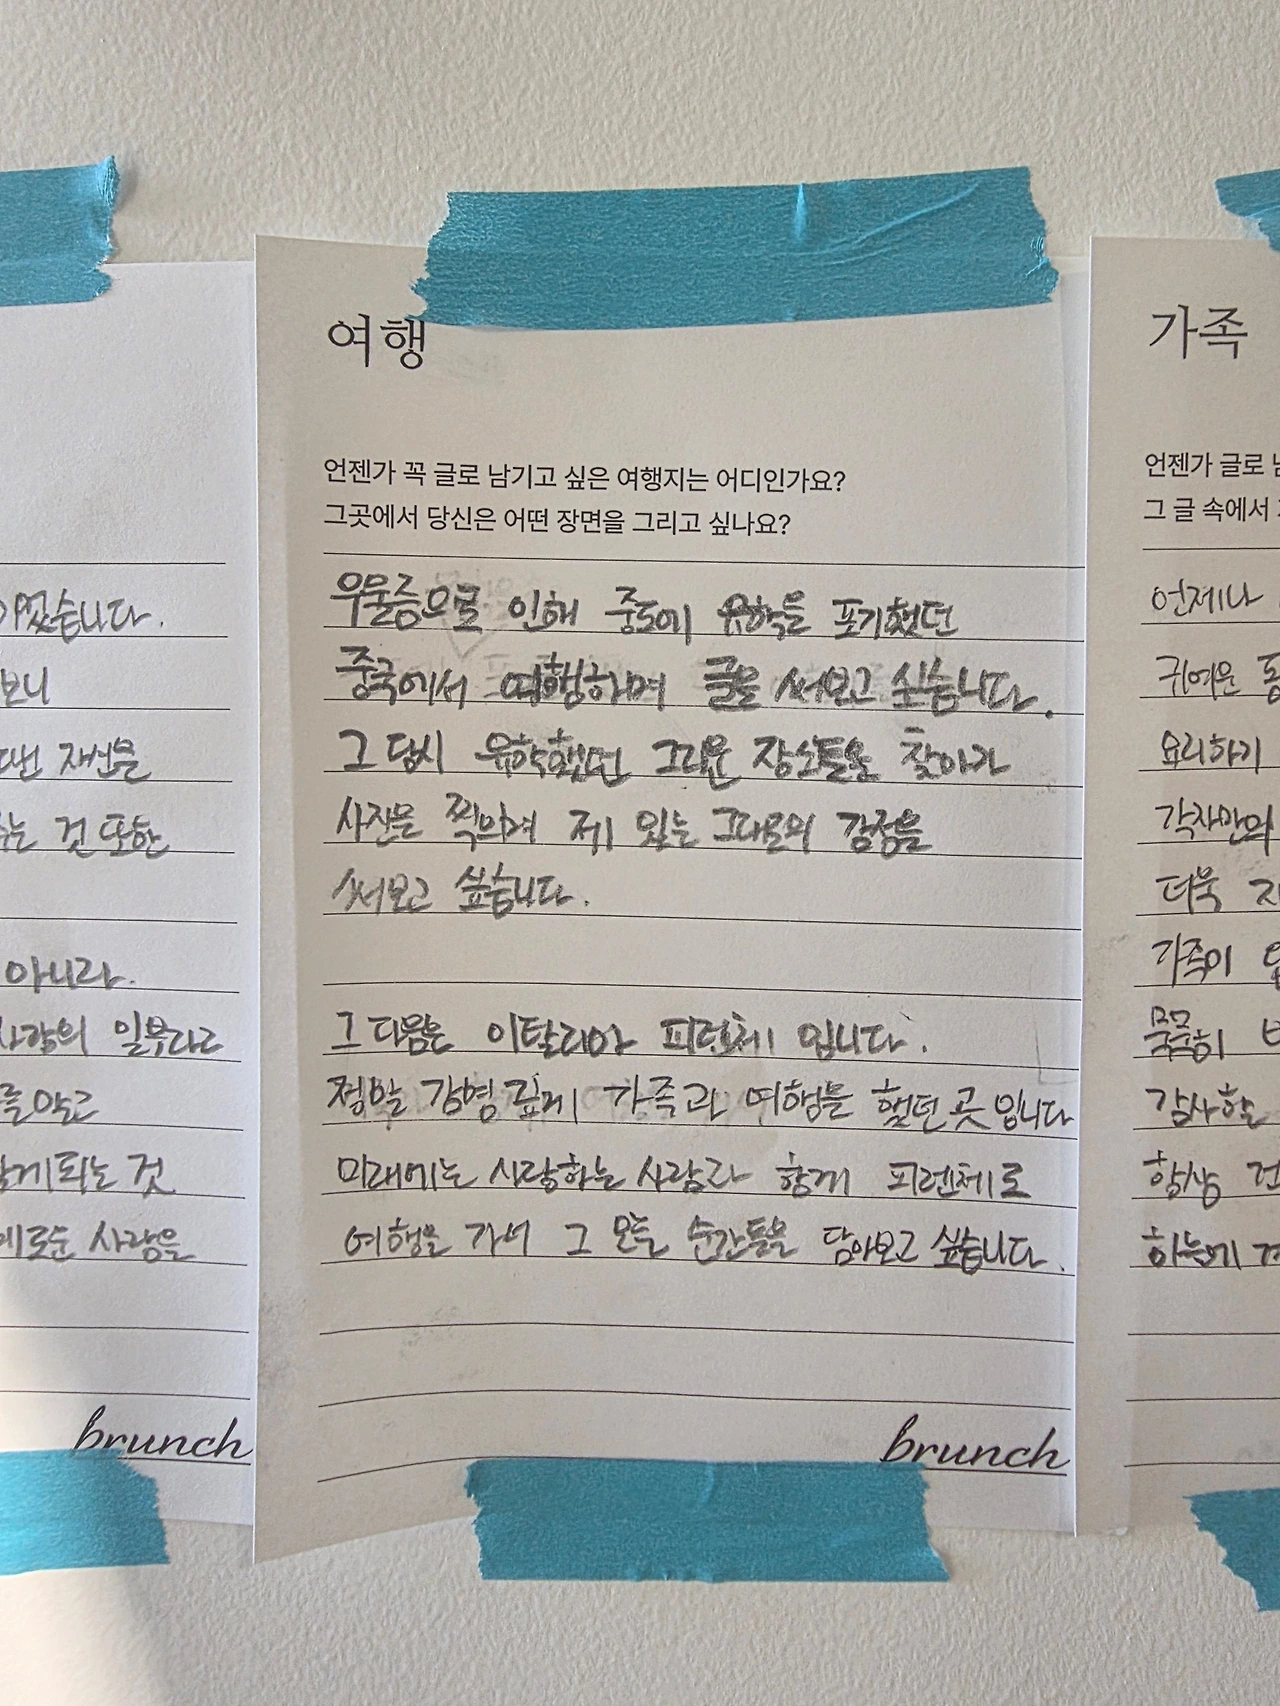 여행
언젠가 꼭 글로 남기고 싶은 여행지는 어디인가요?
그곳에서 당신은 어떤 장면을 그리고 싶나요?
우울증으로 인해 중도에 유학을 포기했던
중국에서 여행하며 글을 써보고 싶습니다.
그 당시 유학했던 그리운 장소들을 찾아가
사진을 찍으며 제 있는 그대로의 감정을
써보고 싶습니다.
그 다음은 이탈리아 피렌체 입니다.
정말 감명 깊게 가족과 여행을 했던 곳 입니다
미래에는 사랑하는 사람과 함께 피렌체로
여행을 가서 그 모든 순간들을 담아보고 싶습니다.
brunch
습니다.
보니
재산을
건 또한
아니라.
사랑의 일부라고
를 안고
되는 것
사람을
brunch
가족
언젠가 글로
그 글 속에서
언제나
귀여운
요리하기
각자만의
더욱
가족이
묵묵히
감사할
항상
하늘에